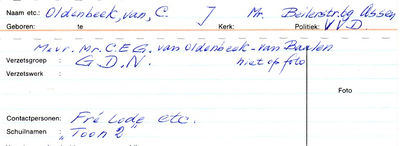 Naam etc.: Oldenbeek, van, C. J Mr. Beilerstr. bg Assen
Geboren: te Kerk: Politiek: VVD.
Mevr. Mr. C.E.G. van Oldenbeek-van Baalen
Verzetsgroep: G.D.N. niet op foto
Verzetswerk:
Foto
Contactpersonen: Fré Lode etc.
Schuilnamen: "Toon 2"